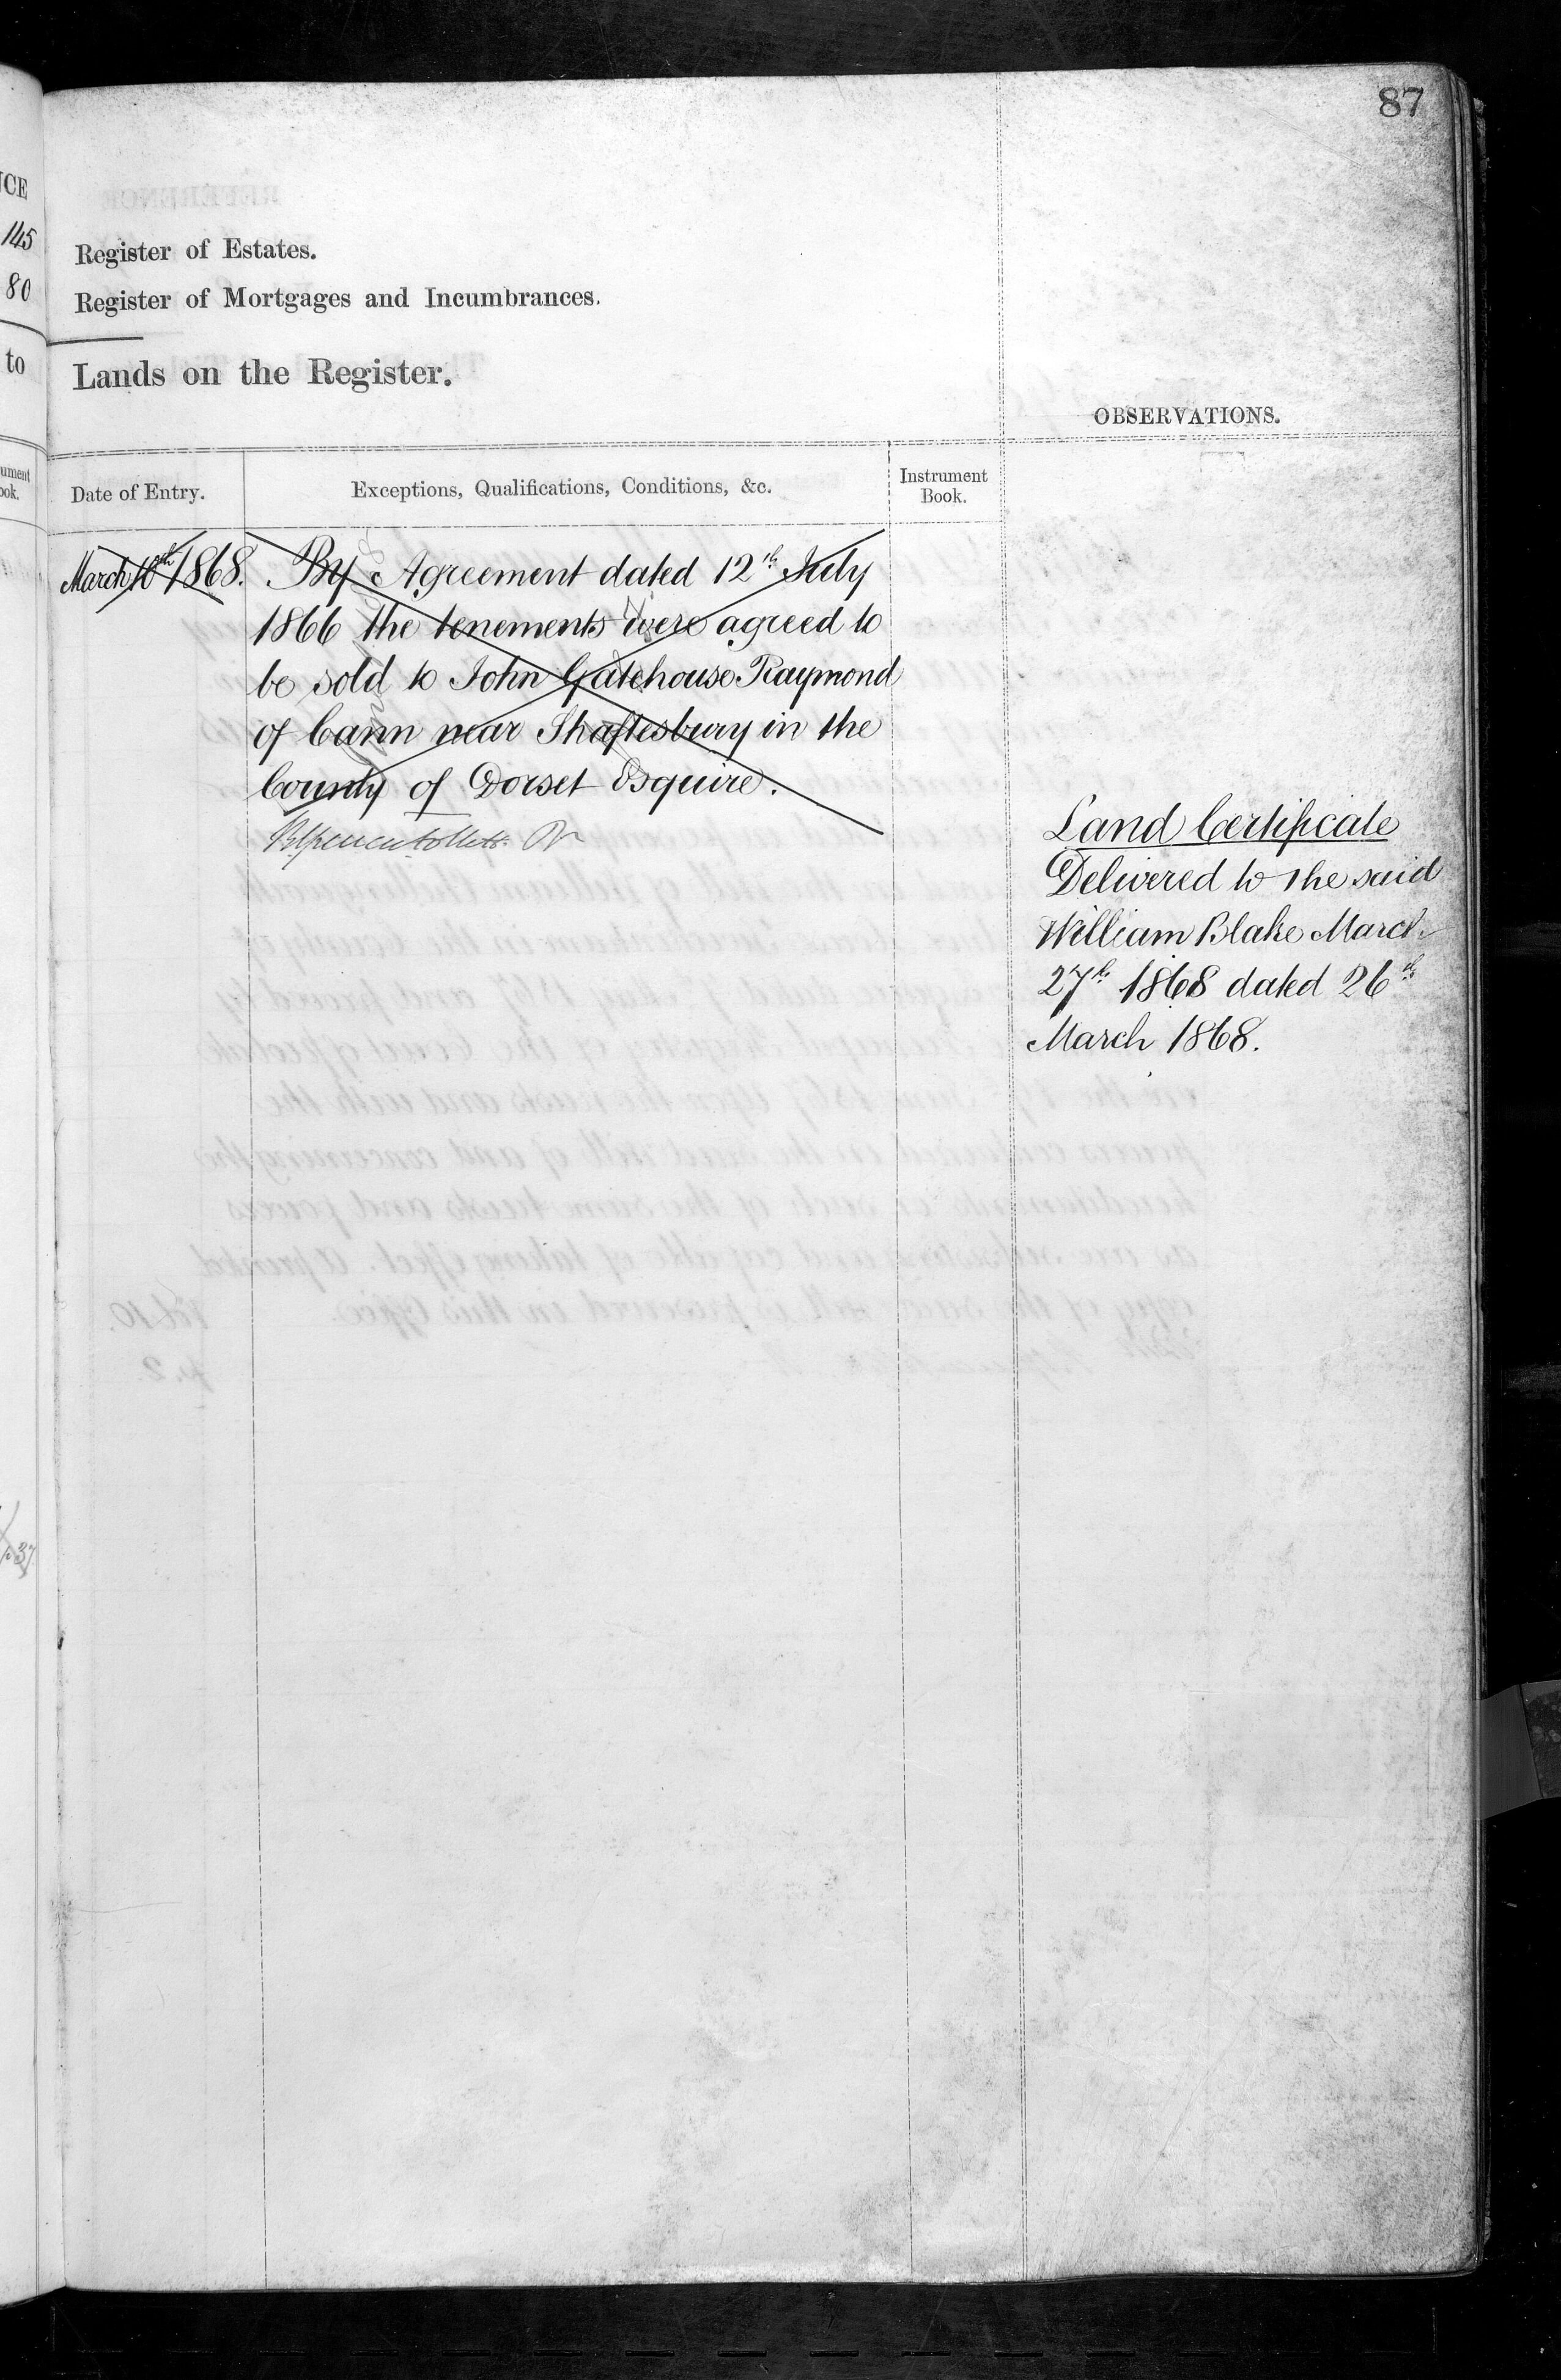 87
CE
145
80
to
Register of Estates.
Register of Mortgages and Incumbrances.
Lands on the Register.
OBSERVATIONS.
ument
ook.
Date of Entry.
Exceptions, Qualifications, Conditions, &c.
Instrument
Book.
March 10th 1868.
By Agreement dated 12th July
1866 the tenements were agreed to
be sold to John Gatehouse Raymond
of Cann near Shaftesbury in the
County of Dorset Esquire.
Land Certificate
Delivered to the said
William Blake March
27th 1868 dated 26th
March 1868.
37